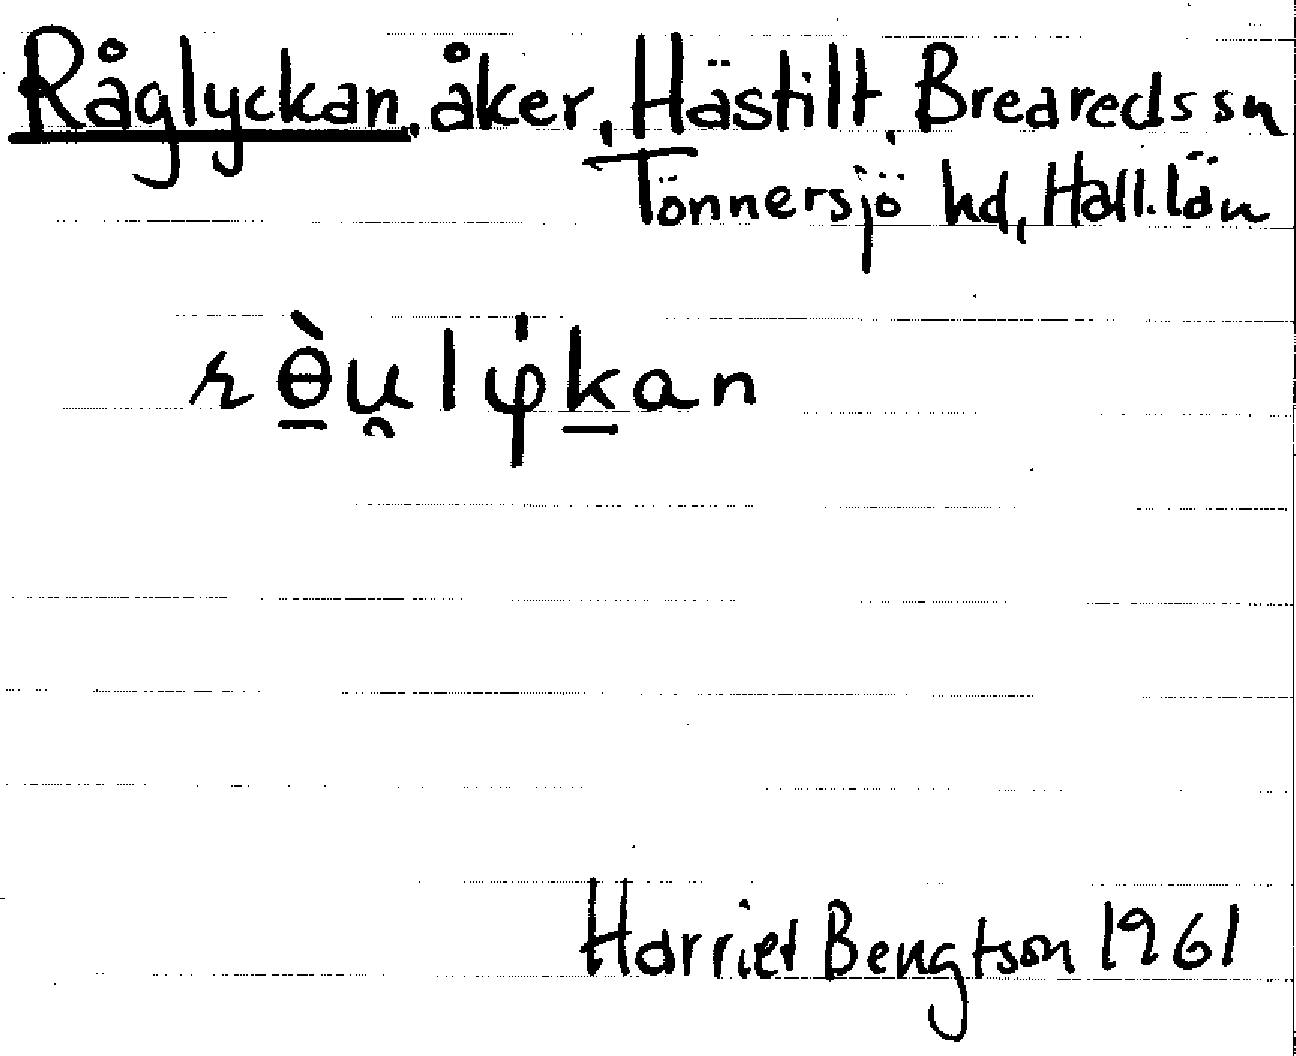 Råglyckan, åker, Hästilt, Breareds sn
Tönnersjö hd, Hall. län
rө̱̀u̯lφ̍ḵan
Harriet Bengtson 1961